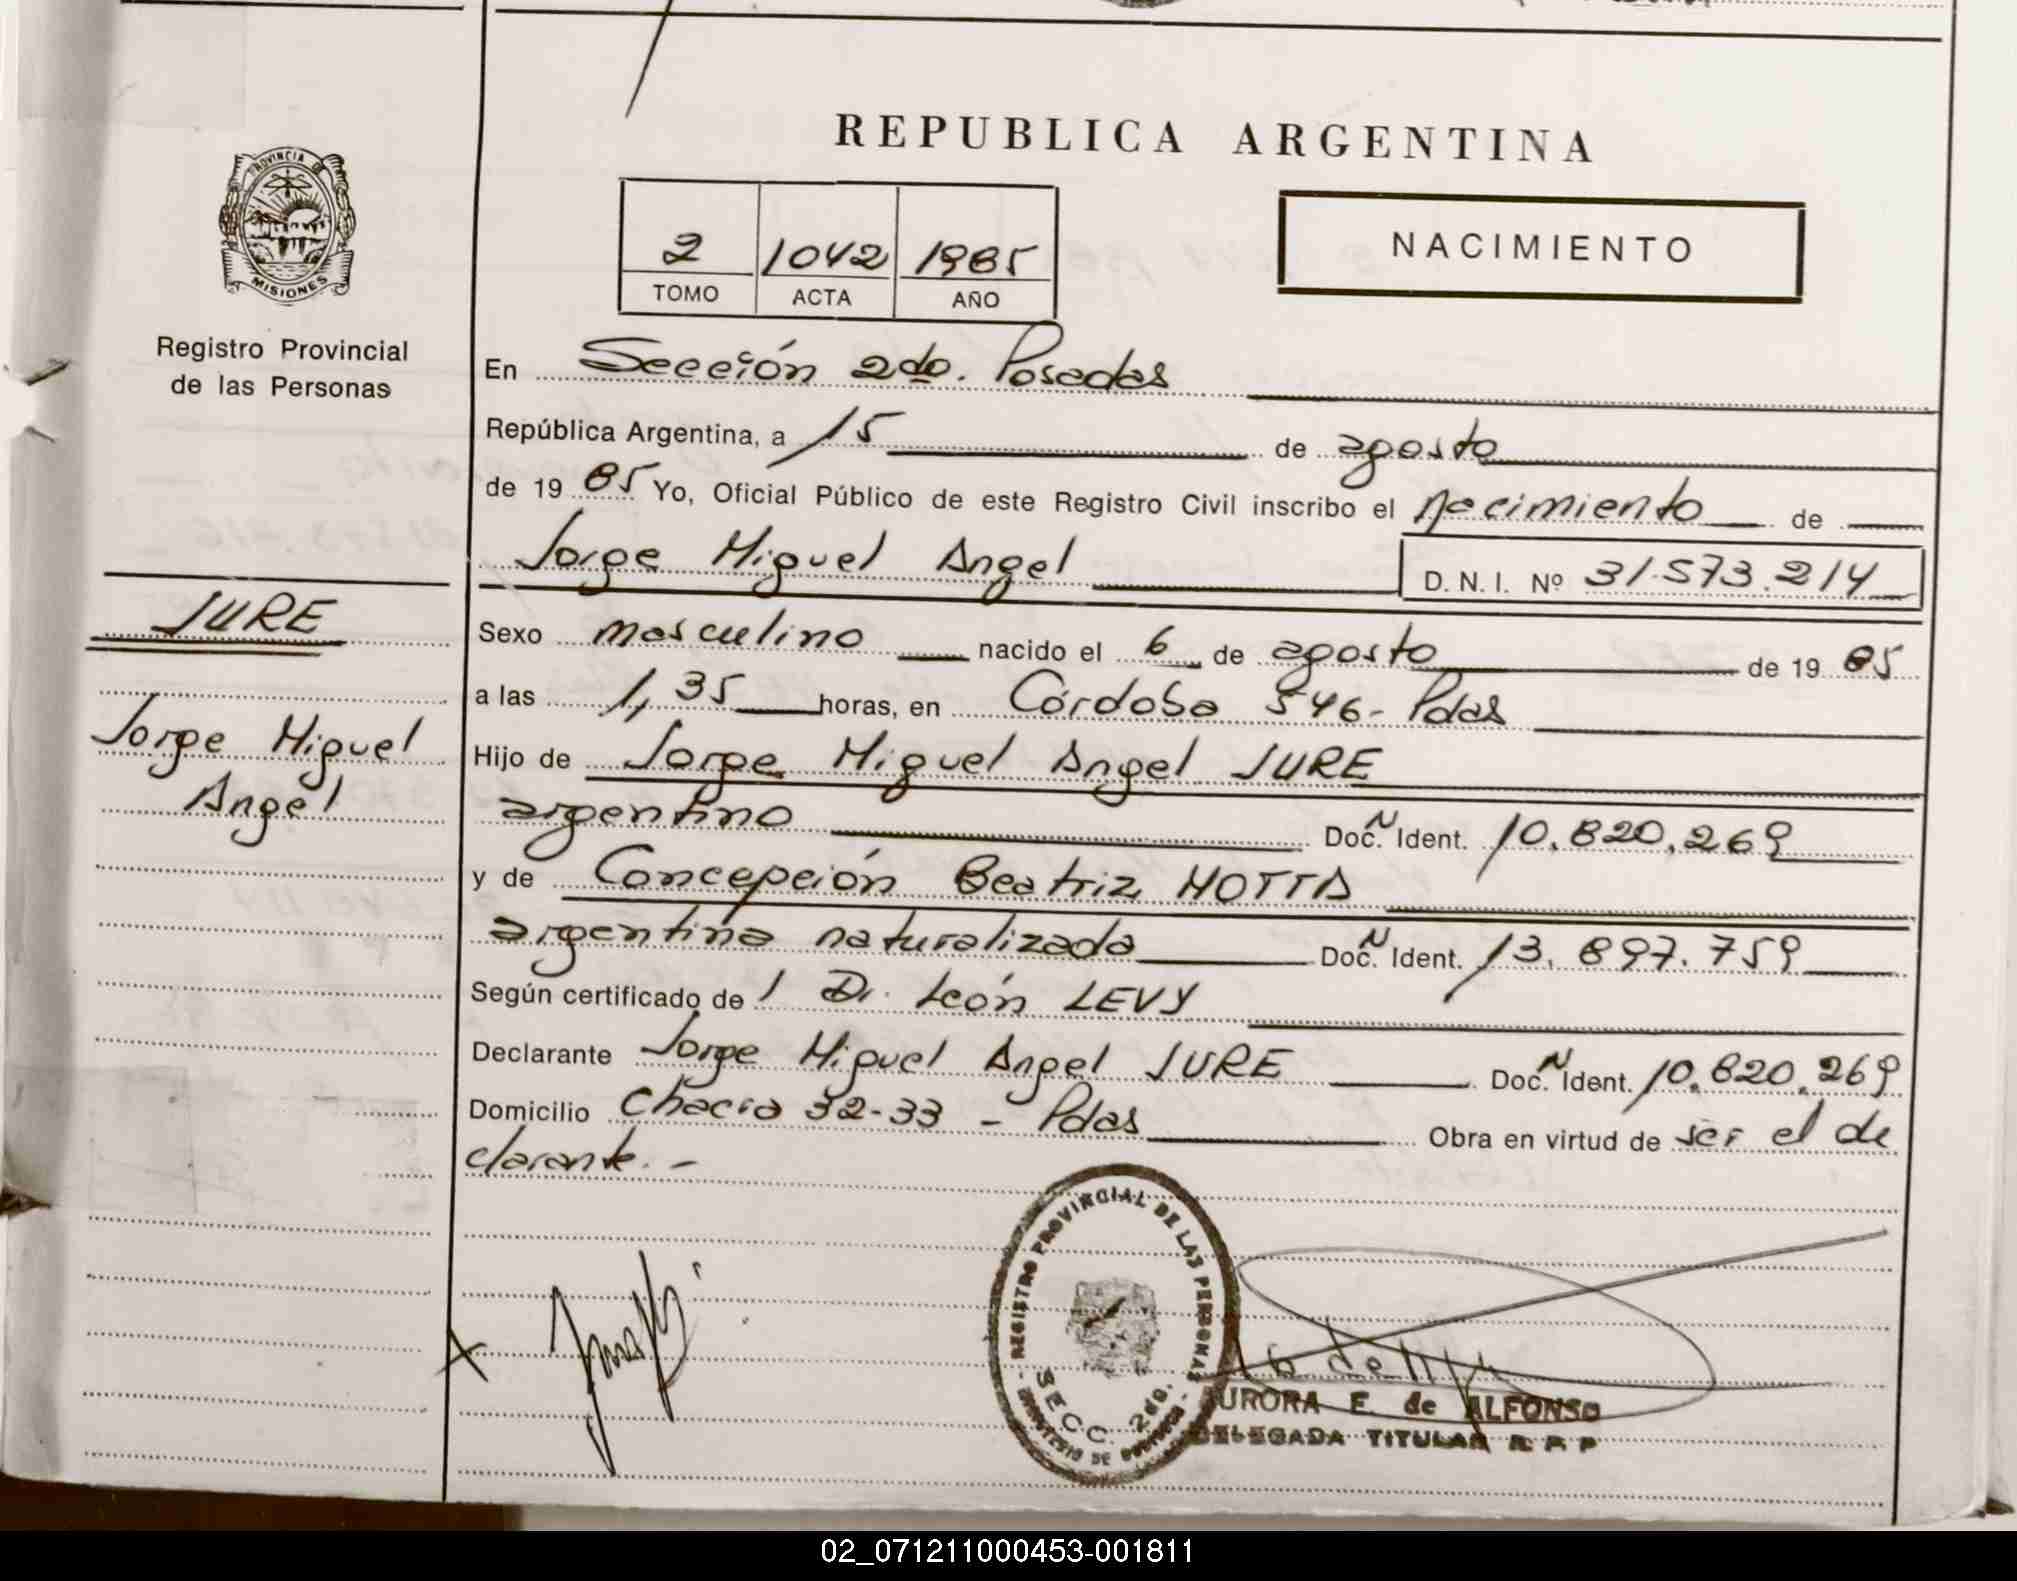 REPUBLICA ARGENTINA
PROVINCIA DE
MISIONES
Registro Provincial
de las Personas
2 1042 1985
TOMO ACTA AÑO
NACIMIENTO
En Sección 2do. Posadas
República Argentina, a 15 de agosto
de 19 85 Yo, Oficial Público de este Registro Civil inscribo el nacimiento de
Jorge Miguel Angel D. N. I. Nº 31.573.214
JURE
Jorge Miguel
Angel
Sexo masculino nacido el 6 de agosto de 19 85
a las 1,35 horas, en Córdoba 546- Pdas
Hijo de Jorge Miguel Angel JURE
argentino Doc. N Ident. 10.820.269
y de Concepción Beatriz MOTTA
argentina naturalizada Doc. N Ident. 13.897.759
Según certificado de / Dr. León LEVY
Declarante Jorge Miguel Angel JURE Doc. N Ident. 10.820.269
Domicilio Chacra 32-33 - Pdas Obra en virtud de ser el de
clarante. -
REGISTRO PROVINCIAL DE LAS PERSONAS
SECC. 2da.
AURORA E. de ALFONSO
DELEGADA TITULAR R P P
02_071211000453-001811